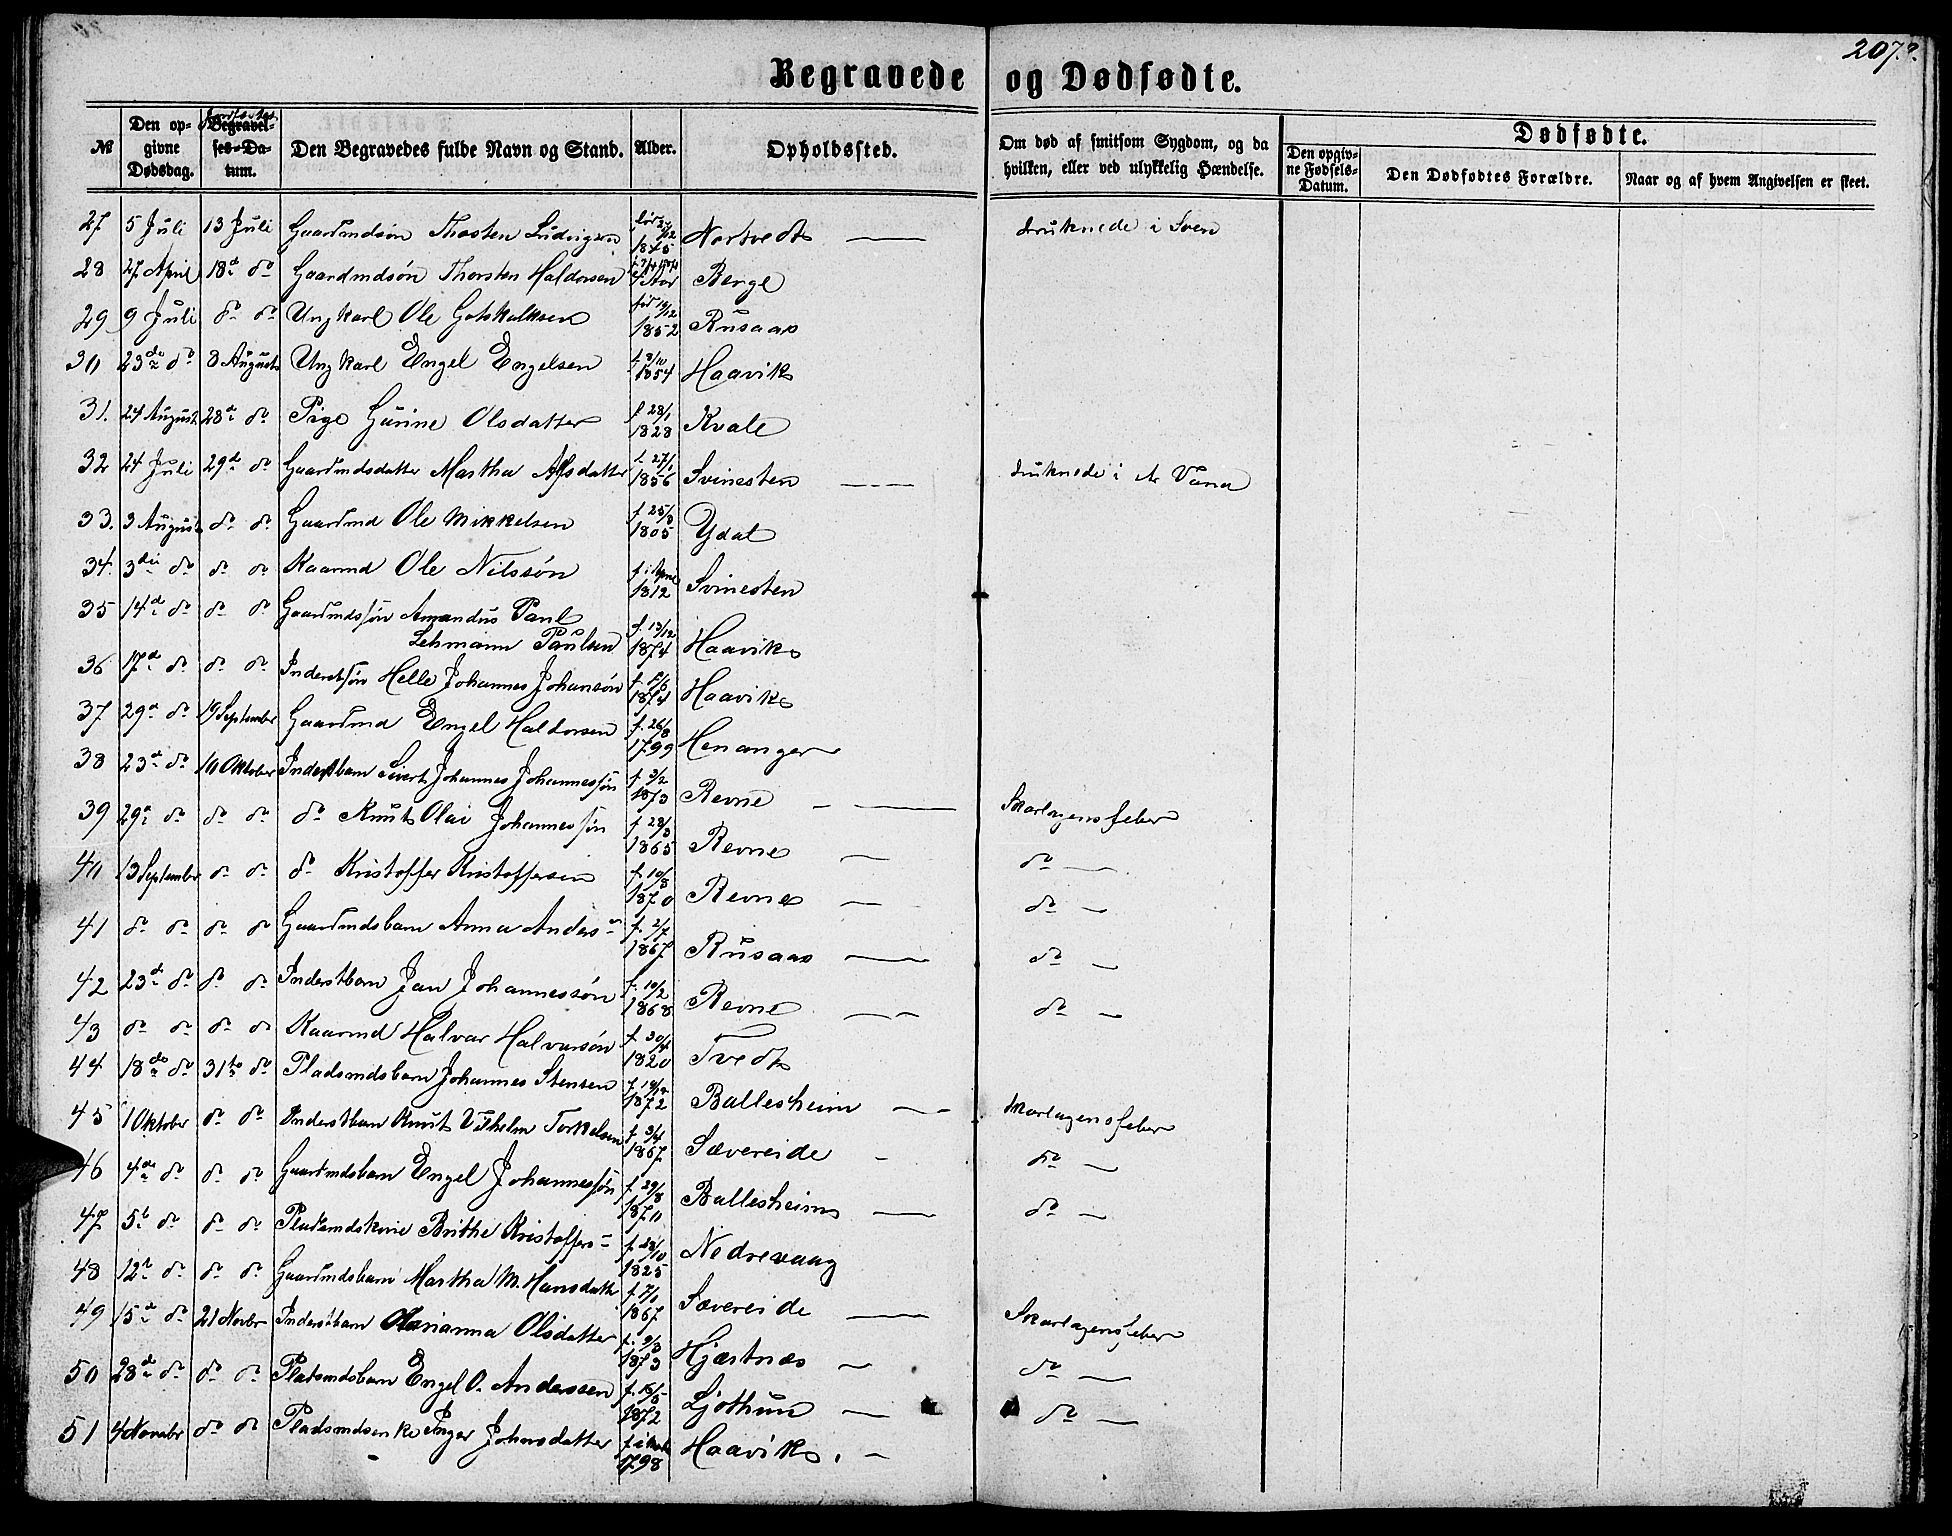 207.
Begravede og Dødfødte.
№
Den opgivne Dødsdag.
Begravelses-Datum.
Den Begravedes fulde Navn og Stand.
Alder.
Opholdssted.
Om død af smitsom Sygdom, og da hvilken, eller ved ulykkelig Hændelse.
Dødfødte.
Den opgivne Fødsels-Datum.
Den Dødfødtes Forældre.
Naar og af hvem Angivelsen er skeet.
27 5 Juli 13 Juli Gaardmdsøn Thosten Ludvigsen 1845 Nortvedt druknede i Søen
28 27 April 18de do Gaardmdsøn Thorsten Haldorsen Berge
29 9 Juli do do Ungkarl Ole Gotskalksen født 19/12 1852 Rusaas
30 23de do 8 August Ungkarl Engel Engelsen f. 8/11 1854 Haavik
31. 24 August 28de do Pige Gurine Olsdatter f 28/1 1828 Kvale
32 24 Juli 29de do Gaardmdsdatter Martha Alfsdatter f. 27/1 1856 Svinesten druknede i
33. 3 August do do Gaardmd Ole Mikkelsen f 25/8 1805 Ydal
34. 3die do do do Kaarmd Ole Nilssøn f. i April 1812 Svinesten
35 14de do do do Gaardmdssøn Amandus Paul
Lehmann Paulsen f. 13/12 1874 Haavik
36 17de do do do Inderstsøn Helle Johannes Johansøn 1874 Haavik
37 29de do 19 September Gaardmd Engel Haldorsen f. 26/8 1799 Henanger
38 23de do 10 Oktober Inderstbarn Sivert Johannes Johannessøn f. 3/2 1873 Revne Skarlagensfeber
39 29de do do do do Knut Olai Johannessøn f. 28/3 1865 Revne do
40 13 September do do do Kristoffer Kristoffersen f. 10/8 1870 Revne do
41 do do do do Gaardmdsbarn Anna Anders f. 2/7 1867 Rusaas do
42 23de do do do Inderstbarn Jan Johannessøn f. 10/2 1868 Revne do
43 do do do do Kaarmd Halvar Halvarsøn f. 30/4 1820 Tvedt
44 18de do 31te do Pladsmdsbarn Johannes Stensen 1872 Ballesheim Skarlagensfeber
45 1 Oktober do do Inderstbarn Knut Vilhelm Torkelsen f. 3/4 1867 Sævereide do
46 4de do do do Gaardmdsbarn Engel Johannessøn f. 29/8 1870 Ballesheim do
47 5te do do do Pladsmdskone Brithe Kristoffers f. 28/10 1825 Nedrevaag
48 12te do do do Gaardmdsbarn Martha M. Hansdatter f. 7/1 1867 Sævereide Skarlagensfeber
49 15de do 21 Novbr Inderstbarn Marianna Olsdatter f. 9/3 1873 Hjærtnæs do
50 28de do do do Pladsmdsbarn Engel O. Anderssen f. 15/5 1872 Ljothun do
51 4 Novembr do do Pladsmdsenke Inger Johnsdatter 1798 Haavik.